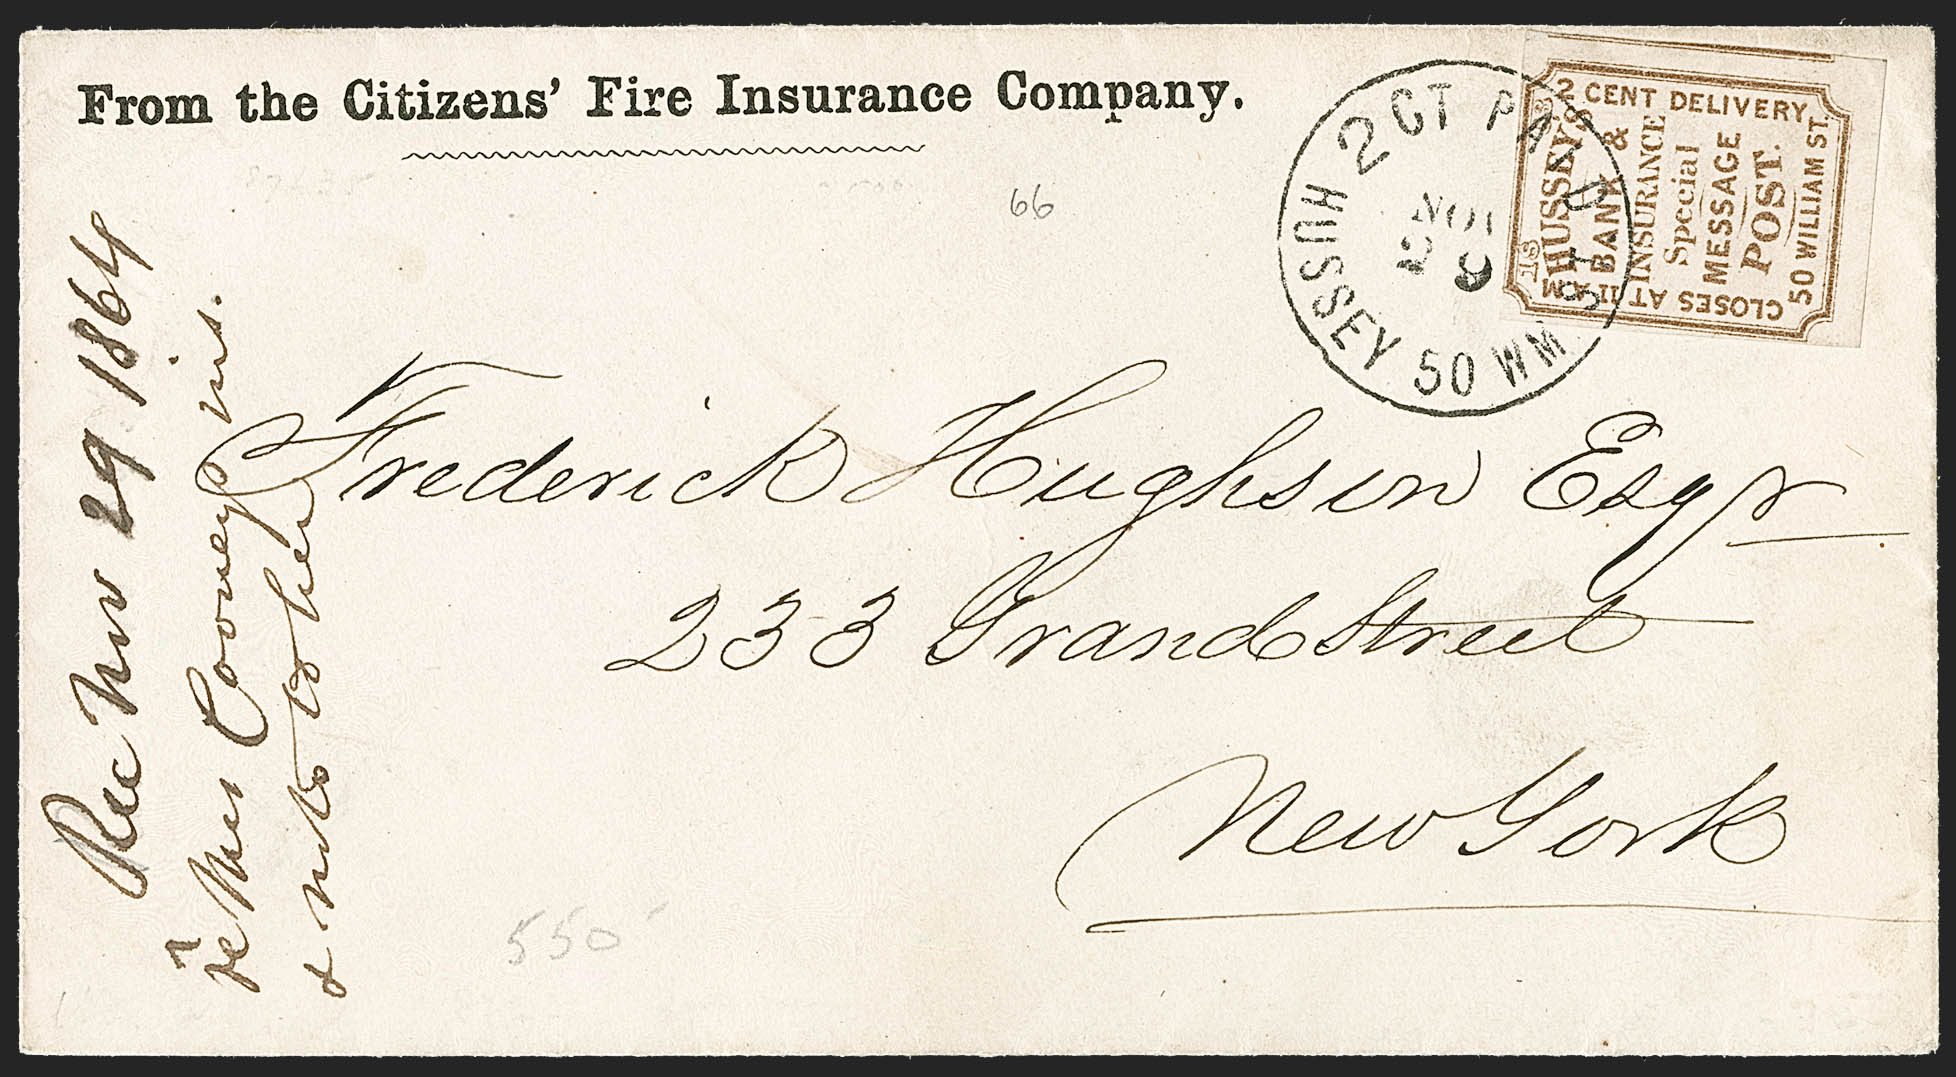 From the Citizens' Fire Insurance Company.
66
2 CT PAID
HUSSEY 50 WM ST
NOV
28
2 CENT DELIVERY
18
HUSSEY'S
BANK &
INSURANCE
Special
MESSAGE
POST.
50 WILLIAM ST.
CLOSES AT 11 AM
Frederick Hughson Esqr
233 Grand Street
New York
Rec Nov 29 1864
Cooney ins.
550